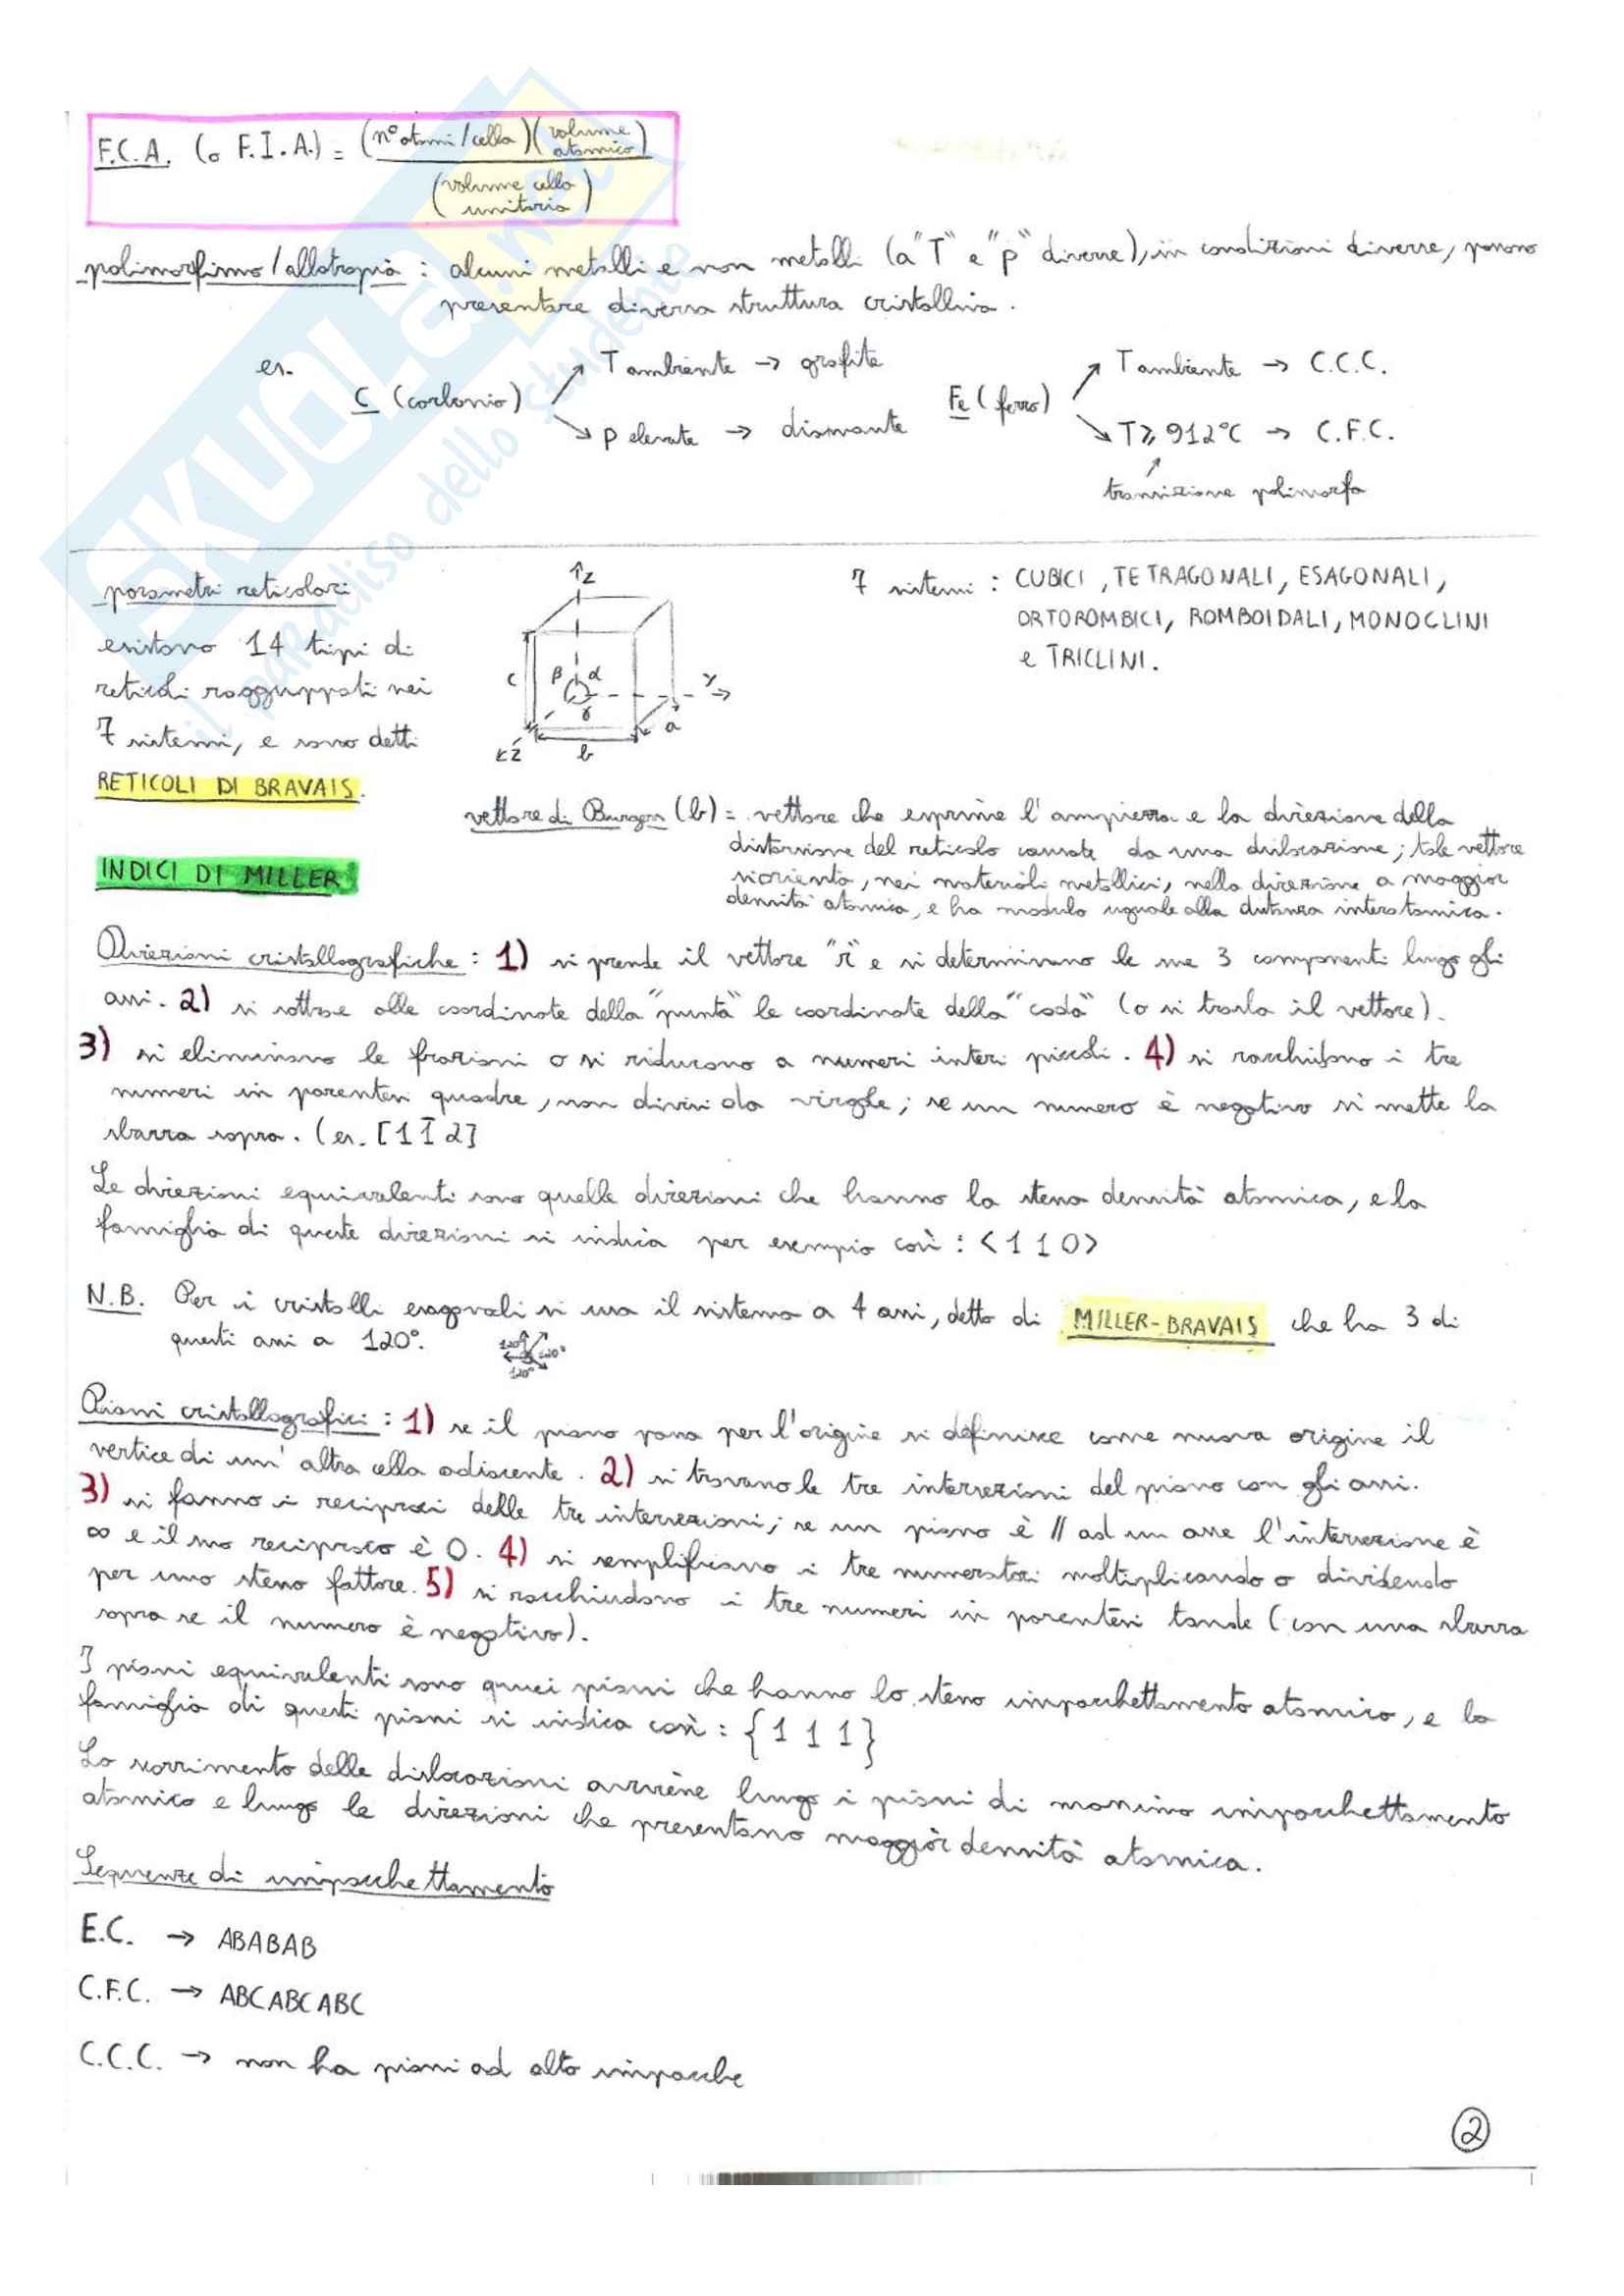 F.C.A. (o F.I.A.) = (n° atomi/cella)(volume atomico)
(volume cella unitaria)
polimorfismo/allotropia : alcuni metalli e non metalli (a "T" e "p" diverse), in condizioni diverse, possono
presentare diversa struttura cristallina.
es.
C (carbonio)
T ambiente → grafite
p elevate → diamante
Fe (ferro)
T ambiente → C.C.C.
T ⩾ 912°C → C.F.C.
transizione polimorfa
parametri reticolari
esistono 14 tipi di
reticoli raggruppati nei
7 sistemi, e sono detti
RETICOLI DI BRAVAIS.
z
c
β α
γ
y
a
b
7 sistemi : CUBICI, TETRAGONALI, ESAGONALI,
ORTOROMBICI, ROMBOIDALI, MONOCLINI
e TRICLINI.
vettore di Burgers (b) = vettore che esprime l'ampiezza e la direzione della
distorsione del reticolo causate da una dislocazione; tale vettore
si orienta, nei materiali metallici, nella direzione a maggior
densità atomica, e ha modulo uguale alla distanza interatomica.
INDICI DI MILLER
Direzioni cristallografiche : 1) si prende il vettore "r" e si determinano le sue 3 componenti lungo gli
assi. 2) si sottrae alle coordinate della "punta" le coordinate della "coda" (o si trasla il vettore).
3) si eliminano le frazioni o si riducono a numeri interi piccoli. 4) si racchiudono i tre
numeri in parentesi quadre, non divisi da virgole; se un numero è negativo si mette la
sbarra sopra. (es. [1 1̅ 2]
Le direzioni equivalenti sono quelle direzioni che hanno la stessa densità atomica, e la
famiglia di queste direzioni si indica per esempio così : <1 1 0>
N.B. Per i cristalli esagonali si usa il sistema a 4 assi, detto di MILLER-BRAVAIS che ha 3 di
questi assi a 120°.
120° 120°
120°
Piani cristallografici : 1) se il piano passa per l'origine si definisce come nuova origine il
vertice di un'altra cella adiacente. 2) si trovano le tre intersezioni del piano con gli assi.
3) si fanno i reciproci delle tre intersezioni; se un piano è // ad un asse l'intersezione è
∞ e il suo reciproco è 0. 4) si semplificano i tre numeratori moltiplicando o dividendo
per uno stesso fattore. 5) si racchiudono i tre numeri in parentesi tonde (con una sbarra
sopra se il numero è negativo).
I piani equivalenti sono quei piani che hanno lo stesso impacchettamento atomico, e la
famiglia di questi piani si indica così : {1 1 1}
Lo scorrimento delle dislocazioni avviene lungo i piani di massimo impacchettamento
atomico e lungo le direzioni che presentano maggior densità atomica.
Sequenze di impacchettamento
E.C. → ABABAB
C.F.C. → ABCABCABC
C.C.C. → non ha piani ad alto impacche
2
SKUOLA.net
il paradiso dello studente